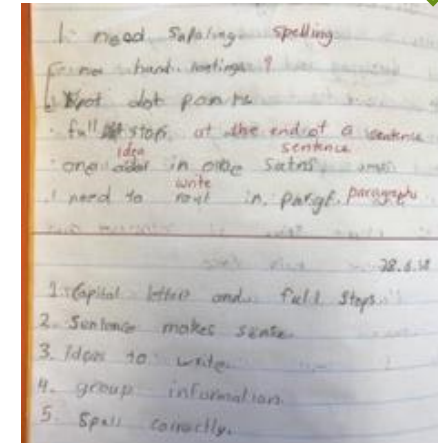 I need Sapaling. spelling
no hand. wreting ?
not dot points
full stops. at the end of a sentence
idea sentence
one in one satns
write
I need to in. pargf. paragraphs
28.6.18
1. Capital letters and full stops.
2. Sentence makes sense.
3. Ideas to write.
4. group information.
5. Spell correctly.